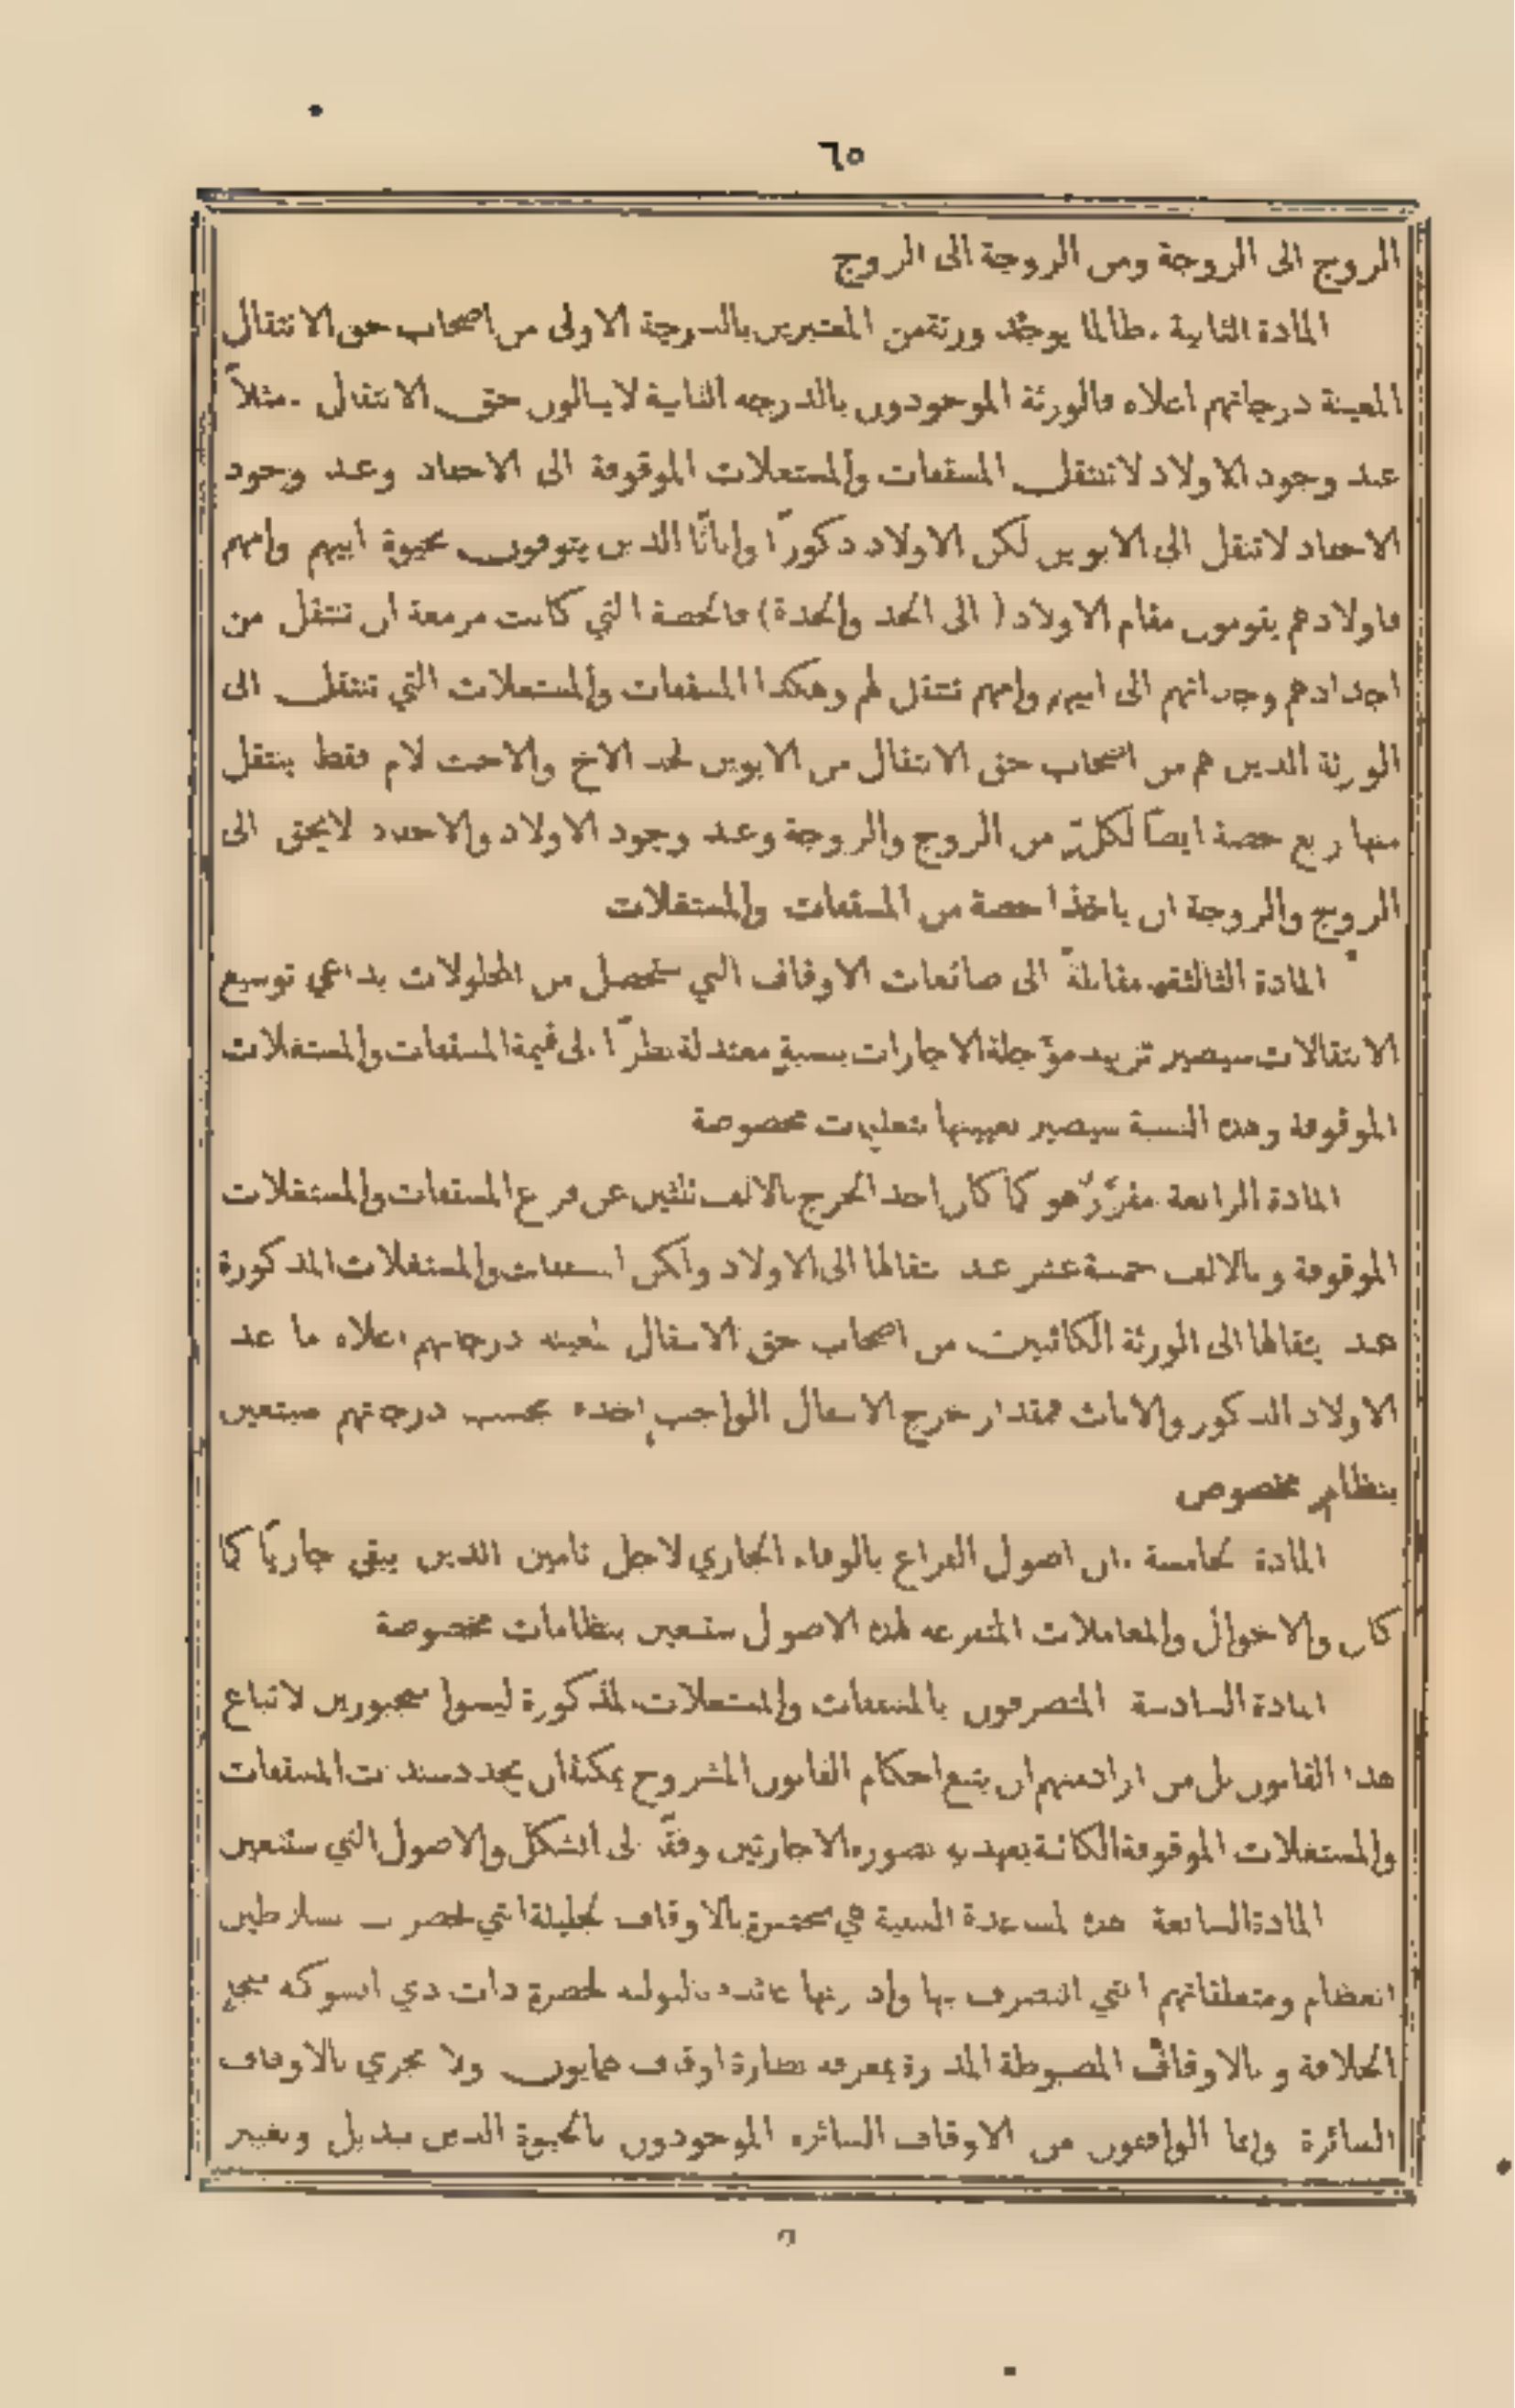 ٦٥
الزوج الى الزوجة ومن الزوجة الى الزوج
المادة الثانية . طالما يوجد ورثة من المعتبرين بالدرجة الاولى من اصحاب حق الانتقال
المعينة درجاتهم اعلاه فالورثة الموجودون بالدرجه الثانية لا ينالون حق الانتقال . مثلاً
عند وجود الاولاد لا تنتقل المسقفات والمستغلات الموقوفة الى الاحفاد وعند وجود
الاحفاد لا تنقل الى الابوين لكن الاولاد ذكورًا واناثًا الذين يتوفون بحيوة ابيهم وامهم
فاولادهم يقومون مقام الاولاد ( الى الجد والجدة ) فالحصة التي كانت مزمعة ان تنتقل من
اجدادهم وجداتهم الى ابيهم وامهم تنتقل لهم وهكذا المسقفات والمستغلات التي تنتقل الى
الورثة الذين هم من اصحاب حق الانتقال من الابوين لحد الاخ والاخت لام فقط ينتقل
منها ربع حصة ايضًا لكلٍّ من الزوج والزوجة وعند وجود الاولاد والاحفاد لا يحق الى
الزوج والزوجة ان ياخذا حصة من المسقفات والمستغلات
المادة الثالثة مقابلةً الى ضائعات الاوقاف التي ستحصل من المحلولات بداعي توسيع
الانتقالات سيصير تزييد مؤجلة الاجارات بنسبةٍ معتدلة نظرًا الى قيمة المسقفات والمستغلات
الموقوفة وهذه النسبة سيصير تعيينها بتعليمات مخصوصة
المادة الرابعة مقرَّرٌ هو كما كان اخذ الخرج بالالف ثلثين عن فراغ المسقفات والمستغلات
الموقوفة وبالالف خمسة عشر عند انتقالها الى الاولاد ولكن المسقفات والمستغلات المذكورة
عند انتقالها الى الورثة الكائنين من اصحاب حق الانتقال المعينه درجاتهم اعلاه ما عدا
الاولاد الذكور والاناث فمقدار خرج الانتقال الواجب اخذه بحسب درجاتهم سيتعين
بنظامٍ مخصوص
المادة الخامسة . ان اصول الفراغ بالوفاء الجاري لاجل تامين الدين يبقى جاريًا كما
كان والاحوال والمعاملات المتفرعه لهذه الاصول ستتعين بنظامات مخصوصة
المادة السادسة المتصرفون بالمسقفات والمستغلات المذكورة ليسوا مجبورين لاتباع
هذا القانون بل من اراد منهم ان يتبع احكام القانون المشروح يمكنه ان يجدد سندات المسقفات
والمستغلات الموقوفة الكائنة بعهدته بصورة الاجارتين وفقًا الى الشكل والاصول التي ستتعين
المادة السابعة هذه المساعدة السنية هي مختصة بالاوقاف الجليلة التي لحضرات سلاطين
العظام ومتعلقاتهم التي التصرف بها وادارتها عائده بالتوليه لحضرة ذات ذي الشوكه
الخلافة وبالاوقاف المضبوطة المدارة بمعرفه نظارة اوقاف همايون ولا تجري بالاوقاف
السائرة وانما الواقفون من الاوقاف السائره الموجودون بالحيوة الذين تبديل وتغيير